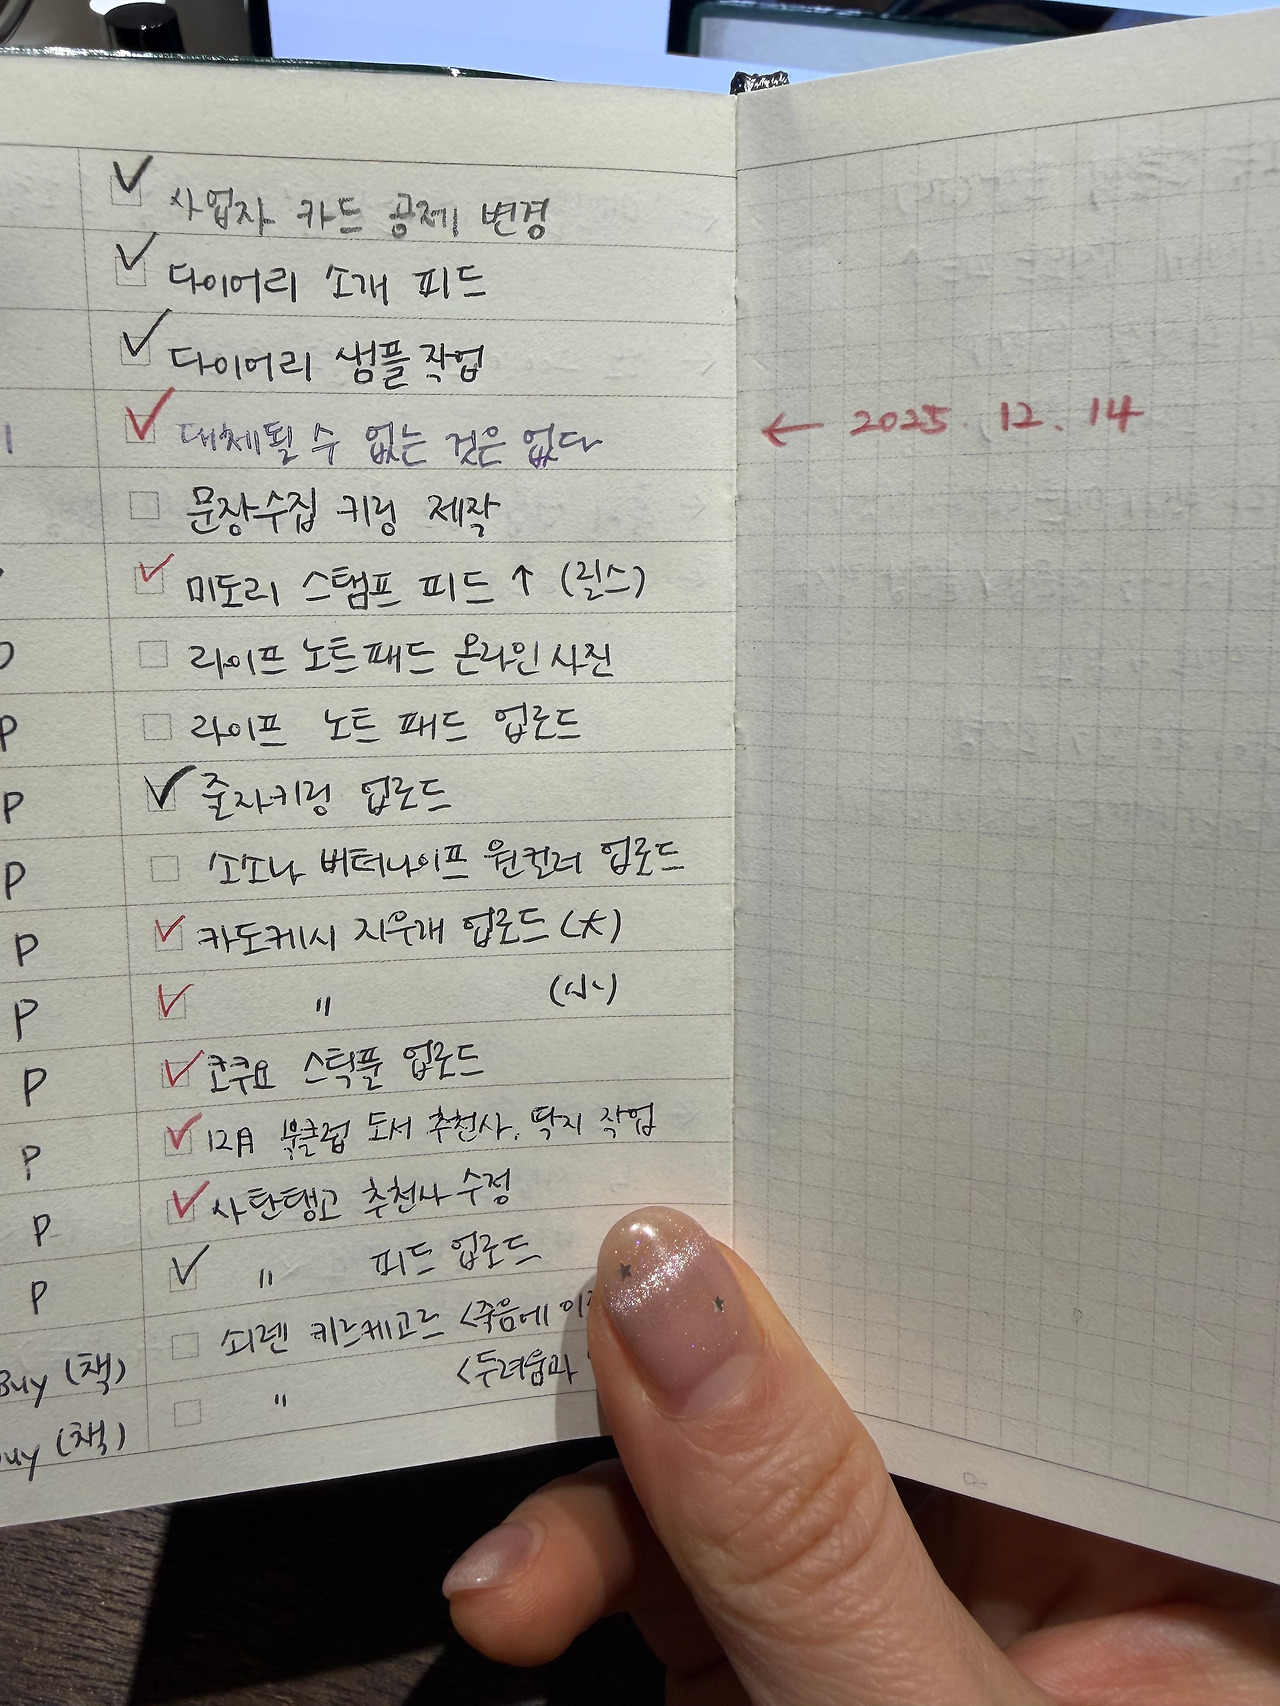 사업자 카드 공제 변경
다이어리 소개 피드
다이어리 샘플 작업
대체될 수 없는 것은 없다 ← 2025. 12. 14
문장수집 키링 제작
미도리 스탬프 피드 ↑ (릴스)
라이프 노트패드 온라인 사진
P 라이프 노트 패드 업로드
P 줄자키링 업로드
P 소소나 버터나이프 원컬러 업로드
P 카도케시 지우개 업로드 (大)
P 〃 (小)
P 코쿠요 스틱풀 업로드
P 12月 북클럽 도서 추천사, 딱지 작업
P 사탄탱고 추천사 수정
P 〃 피드 업로드
Buy (책) 쇠렌 키르케고르 <죽음에 이
uy (책) 〃 <두려움과